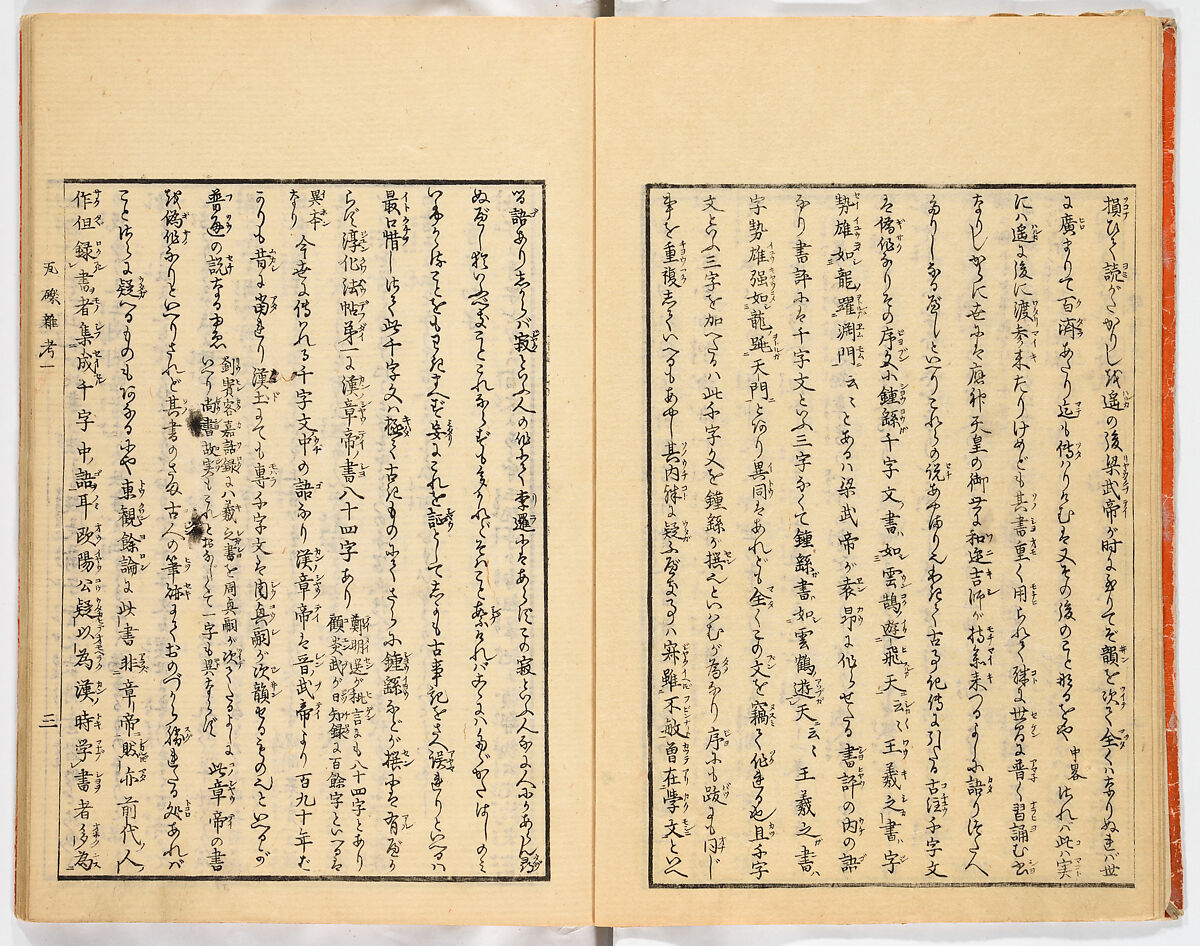 損ひて読がたかりしを遥の後梁武帝が時に至りてぞ韻を次て全くハなりぬれバ世
に廣まりて百済あたり迄も傳ハりけむを又その後のことなるをや 中畧 されバ此ハ実
にハ遥に後に渡参来たりけめども其書重く用られて殊に世間に普く習誦む書
なりしからに世にハ應神天皇の御世に和迩吉師が持参来つるよしに語りつたへ
たりしなるべしといへりこれらの説あやまり也わきて古事記傳に引たる古注千字文
ハ偽作なりその序文に鍾繇千字文書如雲鵠遊飛天云々王羲之書字
勢雄如龍躍渕門云々とあるハ梁武帝が袁昂に作らせたる書評の内の語
なり書評にハ千字文といふ三字なくて鍾繇書如雲鶴遊天云々王羲之書
字勢雄强如龍跳天門とあり異同ハあれども全くこの文を竊て作れる也且千字
文といふ三字を加へたるハ此千字文を鍾繇が撰也といはむが為なり序にも跋にも同じ
事を重複しくいへるもあやし其内殊に疑ふべきなるハ寐雖不敏曽在学文といへ
る語ありしからバ寂といふ人の作にて李暹にハあらずこの寂といふ人なに人にかあらん
ぬべし
これを証としてしかも古事記をさへ誤れりといへるハ
最口惜し此千字文ハ極て古きものにてさらに鍾繇などが撰にハ有べか
らず淳化法帖第一に漢章帝ノ書八十四字あり 鄭明選が秕言にも八十四字とあり
顧炎武が日知録に百餘字といへるハ
異本なり 今世に傳ハれる千字文中の語なり漢章帝ハ晋ノ武帝より百九十年ば
かりも昔に當れり漢土までも専千字文を周真嗣が次韻せるものといへるが
普通の説なるゆゑ 劉賓客嘉話録にハ羲之書を周真嗣が次たるよしに
いへり尚書故実もそれとおなじくて一字も異ならず 此章帝の書
を偽作なりといへりされど其書のさま古人の筆跡にておのづから勝れたる処あれバ
ことさらに疑へるものもあるにや東観餘論に此書非章帝ノ然亦前代人ノ
作但録書者集成千字中語耳歐陽公疑以為漢時学書者多為
瓦礫雜考一
三